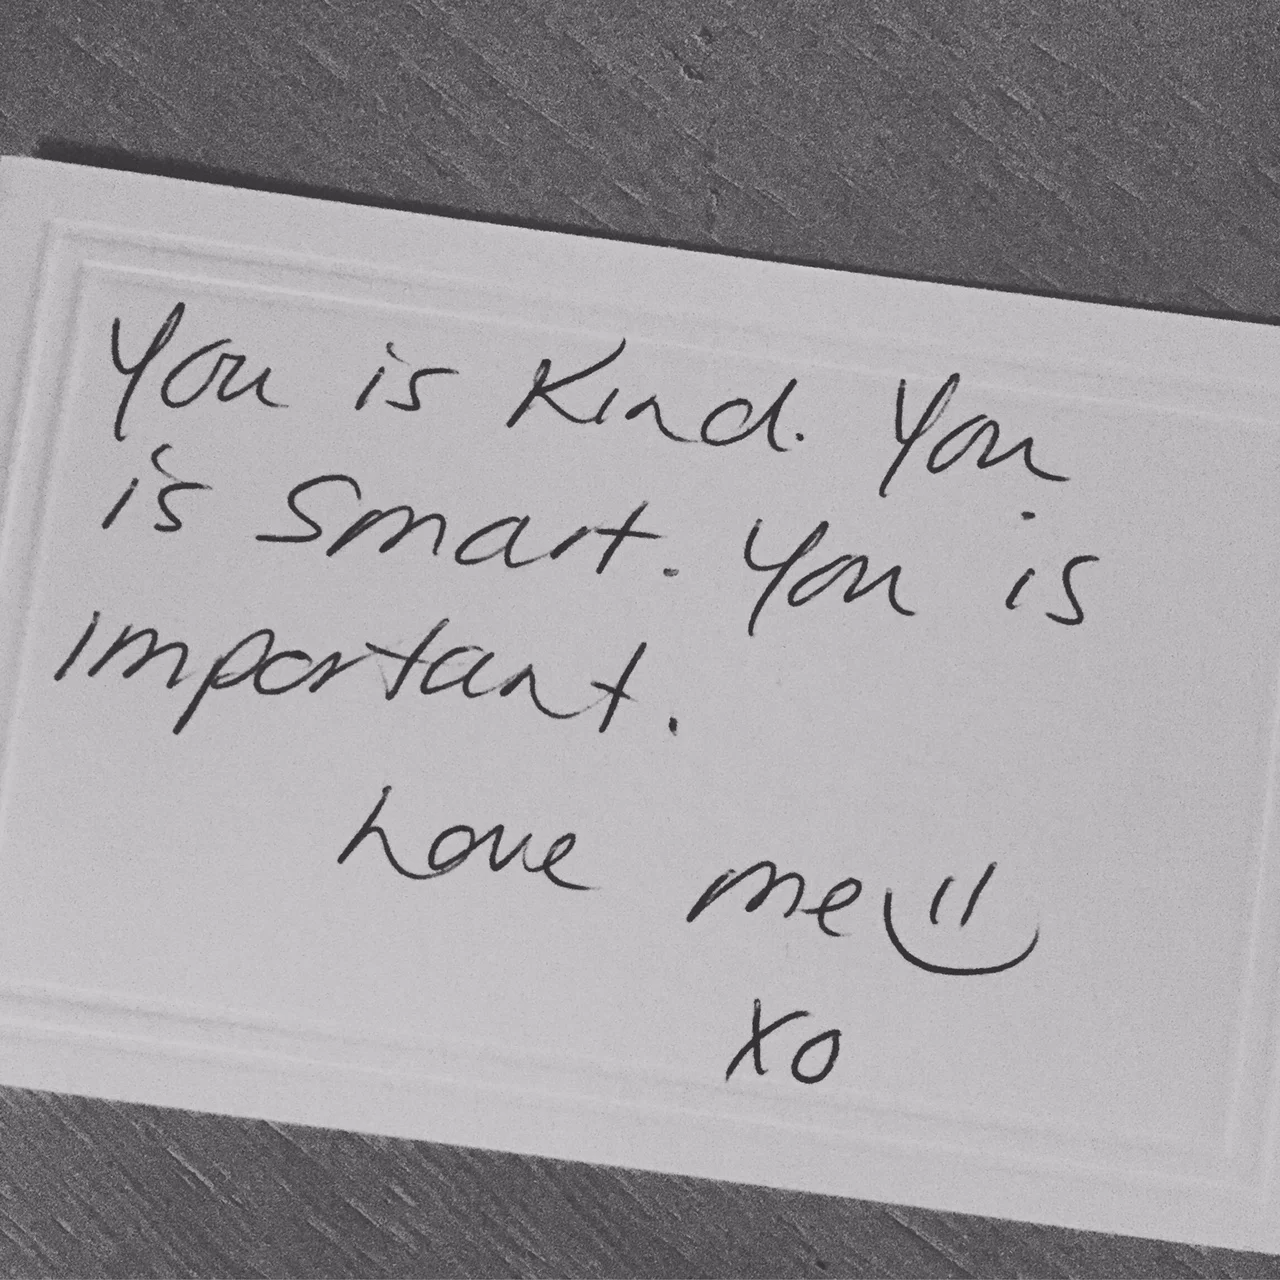 You is Kind. You
is Smart. You is
important.
Love me
xo